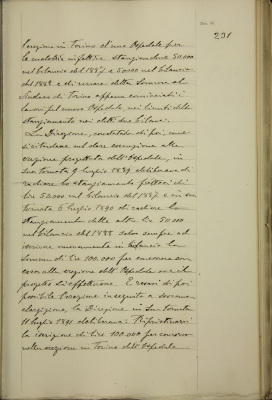 231
l'erezione in Torino di uno Ospedale per
le malattie infettive stanziandone 50.000
nel bilancio del 1887 e 50000 nel bilancio
del 1888 e di versare detta somma al
Sindaco di Torino appena cominciati i
lavori pel nuovo Ospedale nei limiti dello
stanziamento nei detti due bilanci.
La Direzione, constatato di poi, come
si tardasse nel dare esecuzione alla
erezione progettata dell'Ospedale, in
sua tornata 9 luglio 1889 deliberava di
radiare lo stanziamento fattosi di
lire 50.000 nel bilancio del 1887 e in sua
tornata 6 luglio 1890 di radiare lo
stanziamento delle altre lire 50.000
nel bilancio del 1888 salvo sempre ad
iscrivere nuovamente in bilancio la
somma di lire 100.000 per concorso
alla erezione dell'Ospedale ove il
progetto si effettuasse. E resosi di poi
possibile l'erezione in seguito a
elargizione, la Direzione in sua tornata
11 luglio 1891 deliberava: Ripristinarsi
la iscrizione di lire 100.000 per concorso
nella erezione in Torino dell'Ospedale